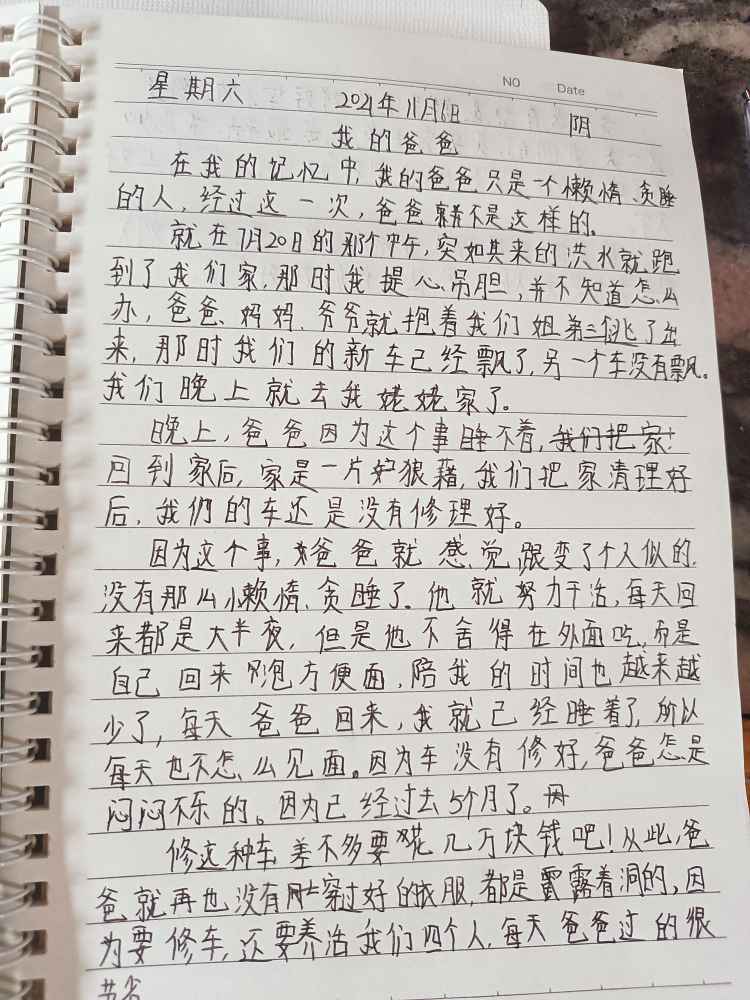 NO Date
星期六 2021年11月6日 阴
我的爸爸
在我的记忆中,我的爸爸只是一个懒惰、贪睡
的人,经过这一次,爸爸就不是这样的。
就在7月20日的那个中午,突如其来的洪水就跑
到了我们家,那时我提心吊胆,并不知道怎么
办,爸爸、妈妈、爷爷就抱着我们姐弟三个逃了出
来,那时我们的新车已经飘了,另一个车没有飘。
我们晚上就去我姥姥家了。
晚上,爸爸因为这个事睡不着,我们把家
回到家后,家是一片狼藉,我们把家清理好
后,我们的车还是没有修理好。
因为这个事,爸爸就感觉跟变了个人似的,
没有那么懒惰、贪睡了。他就努力干活,每天回
来都是大半夜,但是他不舍得在外面吃,而是
自己回来泡方便面,陪我的时间也越来越
少了,每天爸爸回来,我就已经睡着了,所以
每天也不怎么见面。因为车没有修好,爸爸怎是
闷闷不乐的。因为已经过去5个月了。
修这种车差不多要花几万块钱吧!从此,爸
爸就再也没有穿过好的衣服,都是露着洞的,因
为要修车,还要养活我们四个人,每天爸爸过的很